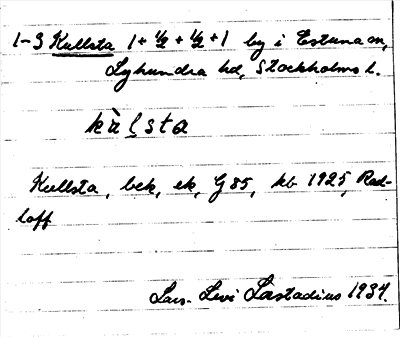 1-3 Kullsta 1 + 1/2 + 1/2 + 1 by i Estuna sn,
Lyhundra hd, Stockholms l.
kàl̨sta
Kullsta, bek, ek, G 85, kb 1925, Rad-
loff
Lars-Levi Læstadius 1934.